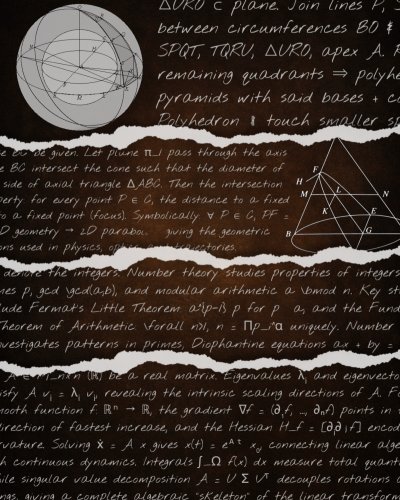 ΔURO ⊂ plane. Join lines P, S
between circumferences BO ∦
SPQT, TQRU, ΔURO, apex A. R
remaining quadrants ⇒ polyhe
pyramids with said bases + co
Polyhedron ∦ touch smaller sp
BC be given. Let plane π_1 pass through the axis
BC intersect the cone such that the diameter of
side of axial triangle ΔABC. Then the intersection
perty: for every point P ∈ C, the distance to a fixed
to a fixed point (focus). Symbolically: ∀ P ∈ C, PF =
D geometry → 2D parabol giving the geometric
ons used in physics, trajectories.
F
H
M
L
N
K
E
B
G
denote the integers. Number theory studies properties of integers
mes p, gcd \gcd(a,b), and modular arithmetic a \bmod n. Key
ude Fermat's Little Theorem p for p a, and the Fund
Theorem of Arithmetic: \forall n>1, n = uniquely. Number
nvestigates patterns in primes, Diophantine equations ax + by =
(ℝ) be a real matrix. Eigenvalues λ and eigenvecto
isfy A vᵢ = λᵢ vᵢ, revealing the intrinsic scaling directions of A. Fo
mooth function f: ℝⁿ → ℝ, the gradient ∇f = (∂₁f, ..., ∂ₙf) points in
direction of fastest increase, and the Hessian H_f = encod
rvature. Solving ẋ = A x gives x(t) = e^At x₀ connecting linear alge
h continuous dynamics. Integrals ∫_Ω f(x) dx measure total quant
hile singular value decomposition A = U Σ Vᵀ decouples rotations
ngs, giving a complete algebraic "skeleton" of the linear transform